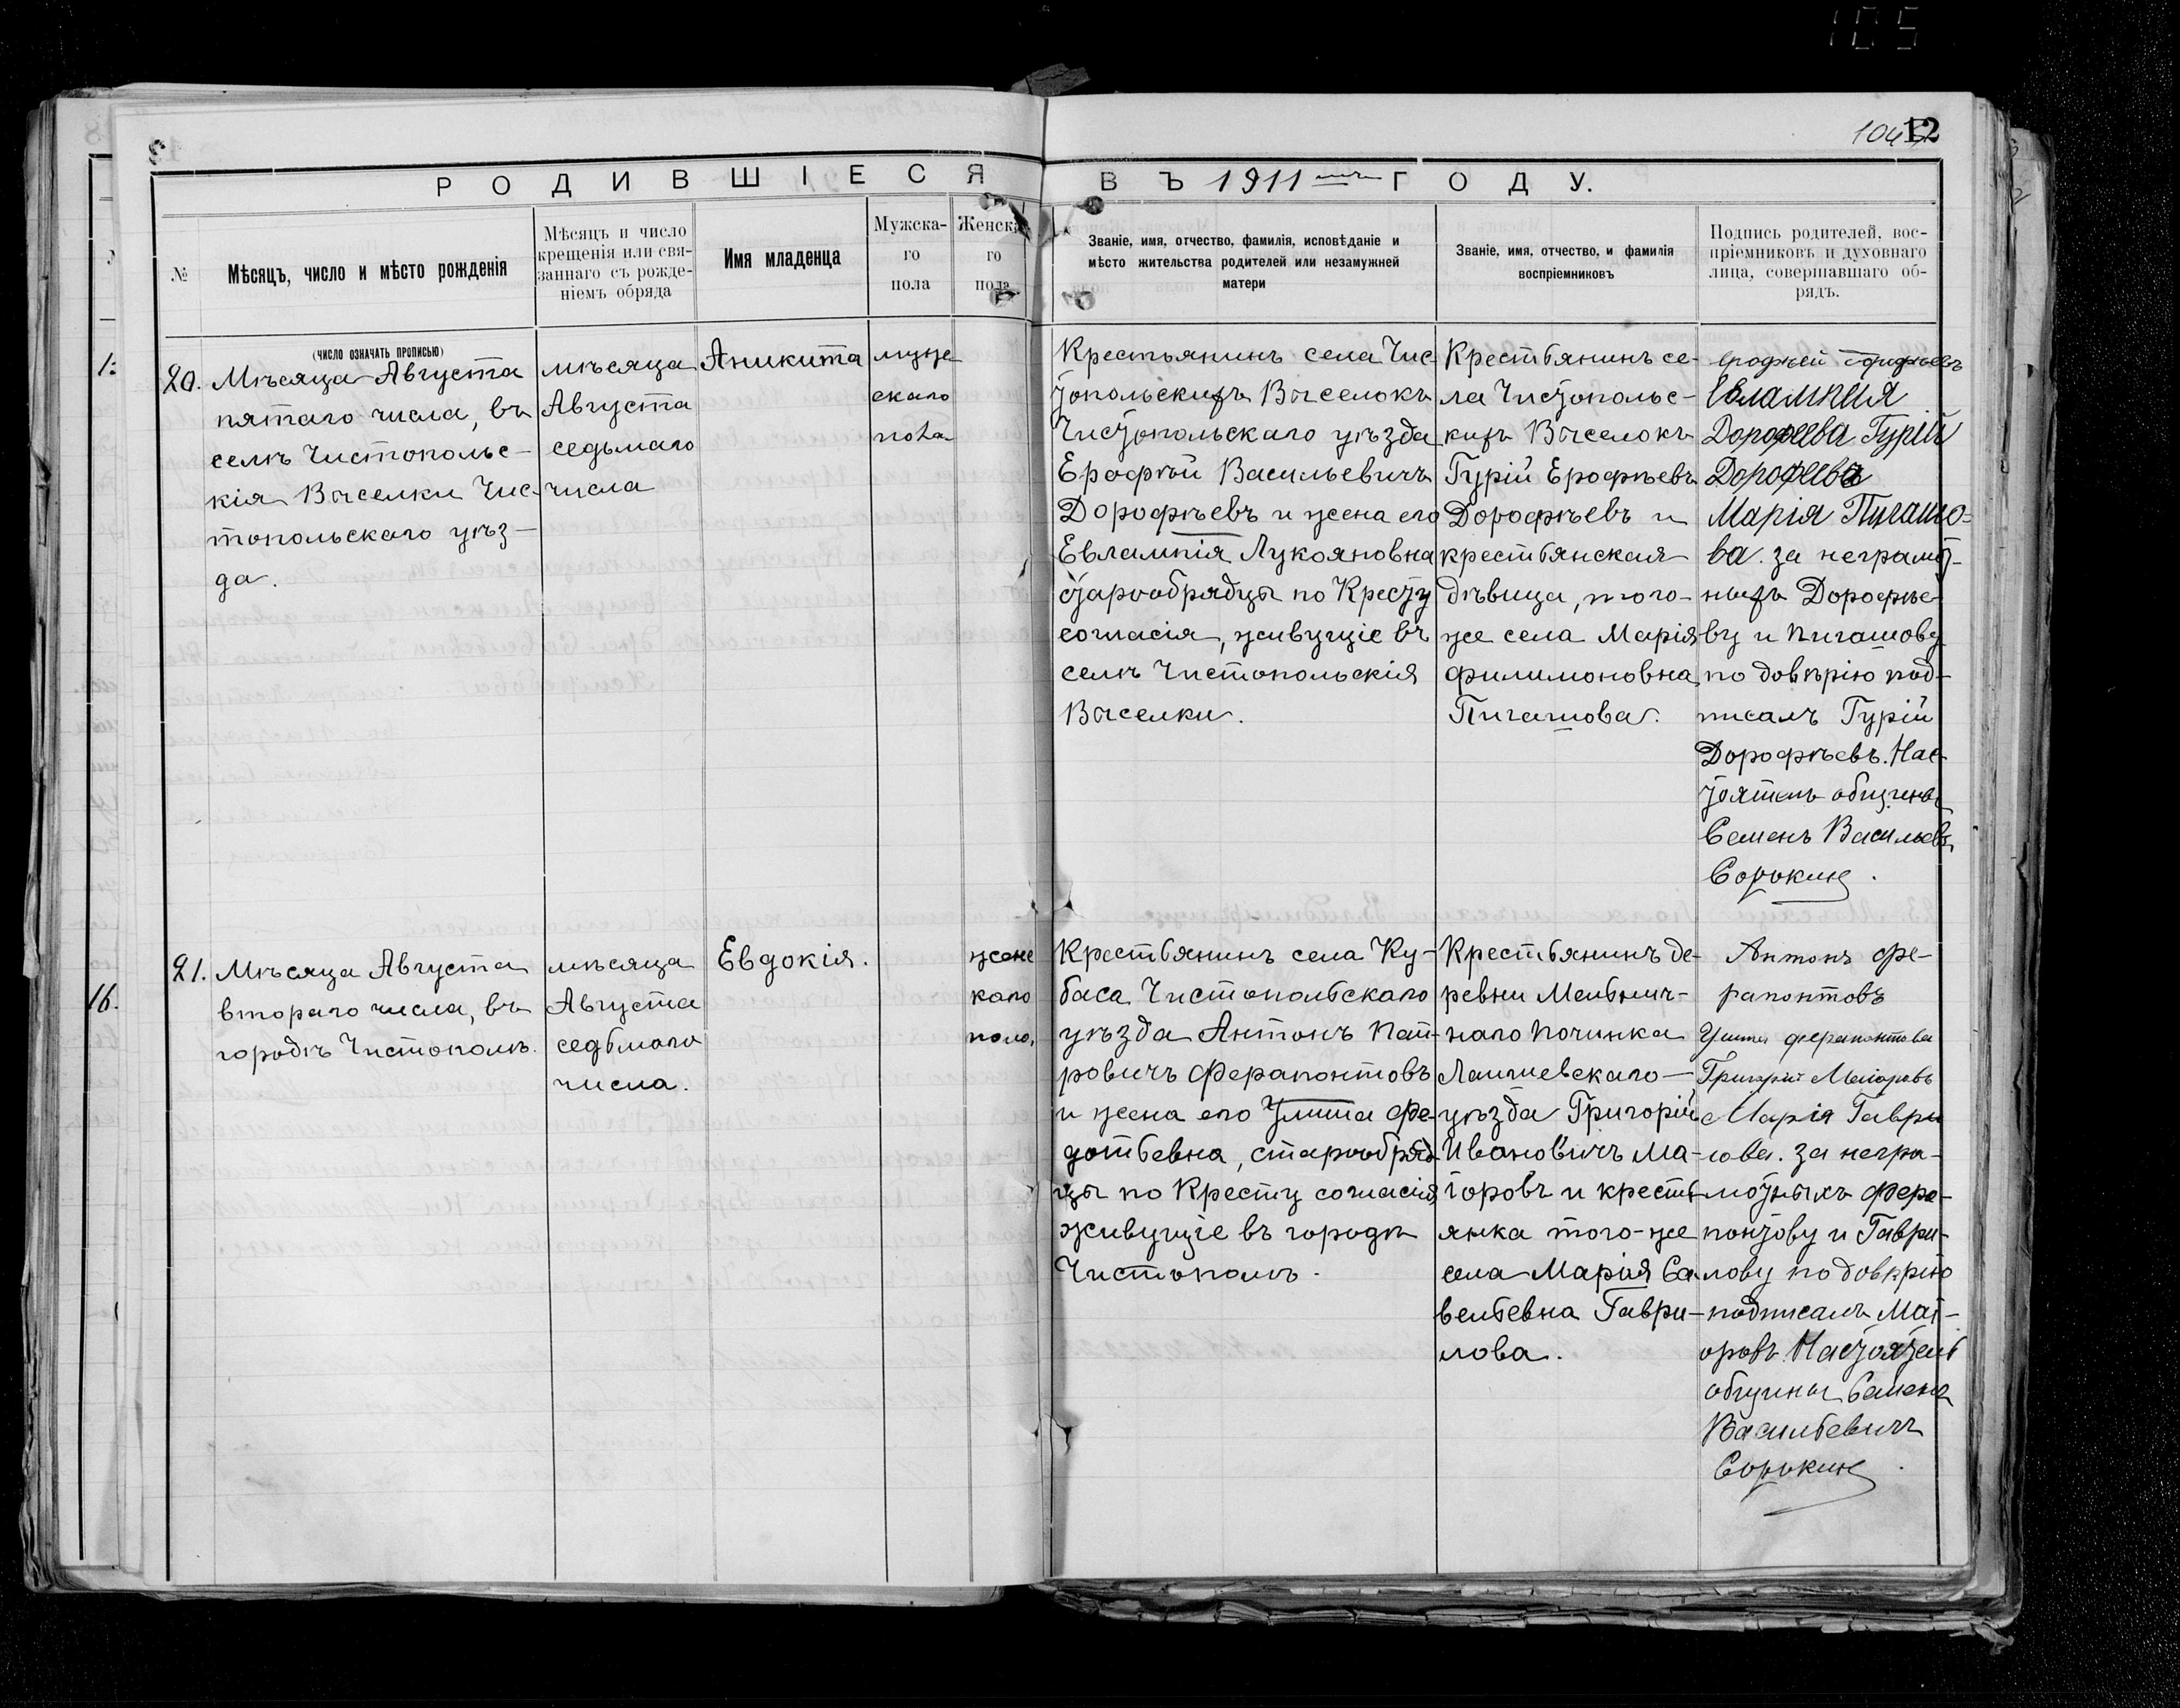 105
104 12
РОДИВШІЕСЯ
ВЪ 1911 ГОДУ.
№
Мѣсяцъ, число и мѣсто рожденія
Мѣсяцъ и число
крещенія или свя-
заннаго съ рожде-
ніемъ обряда
Имя младенца
Мужска-
го
пола
Женска
го
пола
Званіе, имя, отчество, фамилія, исповѣданіе и
мѣсто жительства родителей или незамужней
матери
Званіе, имя, отчество, и фамилія
воспріемниковъ
Подпись родителей, вос-
пріемниковъ и духовнаго
лица, совершавшаго об-
рядъ.
(число означать прописью)
20.
Мѣсяца Августа
пятаго числа, въ
селѣ Чистопольс-
кія Выселки Чис-
топольскаго уѣз-
да.
мѣсяца
Августа
седьмаго
числа
Аникита
муже
скаго
пола
Крестьянинъ села Чис
топольскихъ Выселокъ
Чистопольскаго уѣзда
Ерофѣй Васильевичъ
Дорофѣевъ и жена его
Евлампія Лукояновна
старообрядцы по Кресту
согласія, живущіе въ
селѣ Чистопольскія
Выселки.
Крестьянинъ се-
ла Чистопольс-
кихъ Выселокъ
Гурій Ерофѣевъ
Дорофѣевъ и
крестьянская
дѣвица, того-
же села Марія
Филимоновна
Пигашова.
Евлампия
Дорофеева Гурій
Дорофеевъ
Марія Пигашо-
ва. за неграмот-
ныхъ Дорофѣе-
ву и Пигашову
по довѣрію под-
писалъ Гурій
Дорофѣевъ. Нас-
тоятель общины
Семенъ Васильевъ
Сорокинъ.
21.
Мѣсяца Августа
втораго числа, въ
городѣ Чистополѣ.
мѣсяца
Августа
седьмаго
числа.
Евдокія.
жене
каго
пола,
Крестьянинъ села Ку-
баса Чистопольскаго
уѣзда Антонъ Пат-
ровичъ Ферапонтовъ
и жена его Улита Фе-
дотьевна, старообряд-
цы по Кресту согласія,
живущіе въ городѣ
Чистополѣ.
Крестьянинъ де-
ревни Мельнич-
наго Починка
Лаишевскаго
уѣзда Григорій
Ивановичъ Ма-
іоровъ и кресть-
янка того-же
села Марія Са-
вельевна Гаври-
лова.
Антонъ Фе-
рапонтовъ
Улита Ферапонтова
Григорій Маіоровъ
Марія Гаври
лова. за негра-
мотныхъ Фера-
понтову и Гаври-
лову по довѣрію
подписалъ Маі-
оровъ. Настоятель
общины Семенъ
Васильевичъ
Сорокинъ.
16.